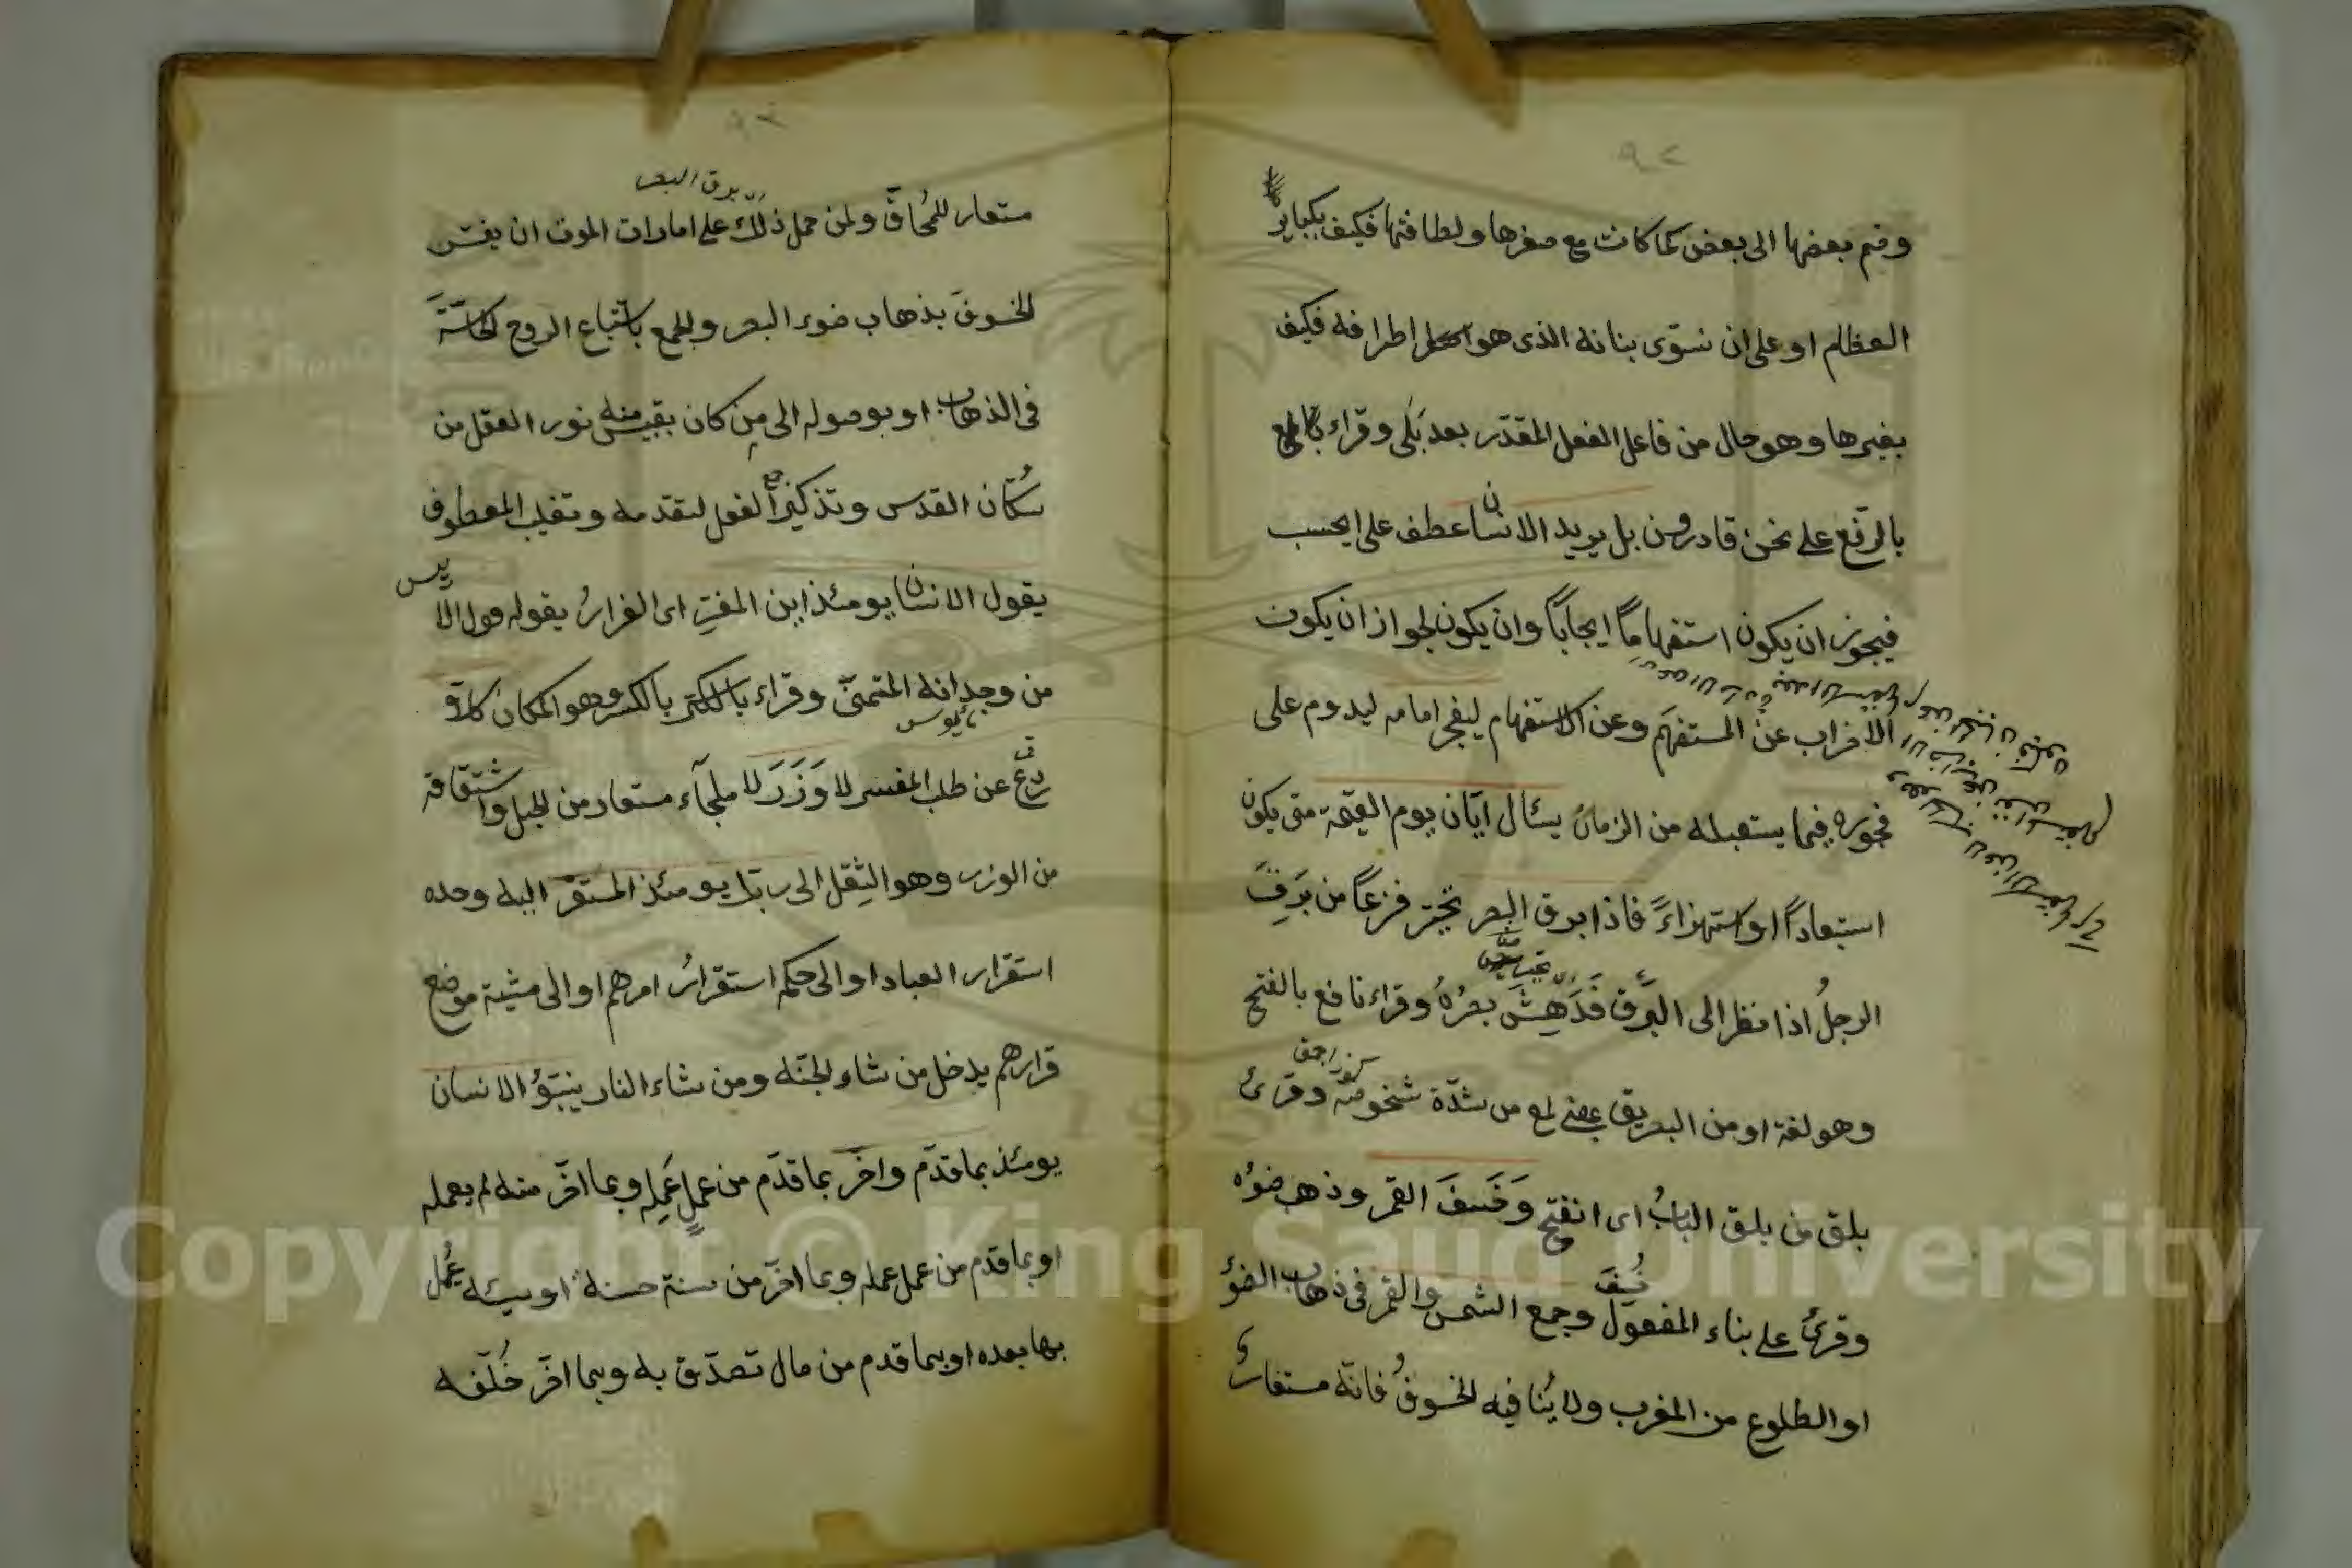 ٩٢
وضم بعضها الى بعض كما كانت مع صغرها ولطافتها فكيف بكبار
العظام او على ان نسوّى بنانه الذى هو اطرافه فكيف
بغيرها وهو حال من فاعل الفعل المقدّر بعد بَلى وقراء
بالرّفع على نحن قادرون بل يريد الانسان عطف على ايحسب
فيجوز ان يكون استفهاماً ايجاباً وان يكون لجواز ان يكون
الاضراب عن المستفهَم وعن الاستفهام ليفجر امامه ليدوم على
فجوره فيما يستقبله من الزمان يسئال ايّان يوم القيمة متى يكون
استبعاداً او استهزاءً فاذا برق البصر تحيّر فزعاً من بَرِقَ
الرجلُ اذا نظر الى البَرق فَدَهِشَ بصرُهُ وقراء نافع بالفتح
وهو لغة او من البريق بمعنى لمع من شدّة شخوصه وقرئ
بلق من بلق البابُ اى انفتح وَخَسَفَ القمر وذهب ضوؤه
وقرئ على بناء المفعول وجمع الشمس والقمر فى ذهاب الضوء
او الطلوع من المغرب ولا يُنافيه الخسوفُ فانّه مستعار
٩٣
اى برق البصر
مستعار للمُحاقّ ولمن حمل ذلك على امارات الموت ان يفسّر
الخسوفَ بذهاب ضوء البصر وللجمع باستتباع الروح الحاسّةَ
فى الذهاب او بوصوله الى من كان يقتبس منه نور العقل من
سُكّان القدس وتذكير الفعل لتقدمه وتغليب المعطوف
يقول الانسان يومئذ اين المفرّ اى الفرارُ يقوله قول الايس
من وجدانه المتمنّى وقراء بالكسر وهو المكان كلّا
ردع عن طلب المفرّ لا وَزَرَ لا ملجاء مستعار من الجبل واشتقاقه
من الوزر وهو الثِقل الى ربّك يومئذ المستقرّ اليه وحده
استقرار العباد او الى حكمه استقرارُ امرهم او الى مشيّة موضع
قرارهم يدخل من شاء الجنّة ومن شاء النار ينبّؤ الانسان
يومئذ بما قدّم واخّر بما قدّم من عملٍ عَمِله وبما اخّر منه لم يعمله
او بما قدم من عمل عمله وبما اخّر من سنة حسنة او سيئه عُمل
بها بعده او بما قدم من مال تصدّق به وبما اخّر خُلّفه
Copyright © King Saud University